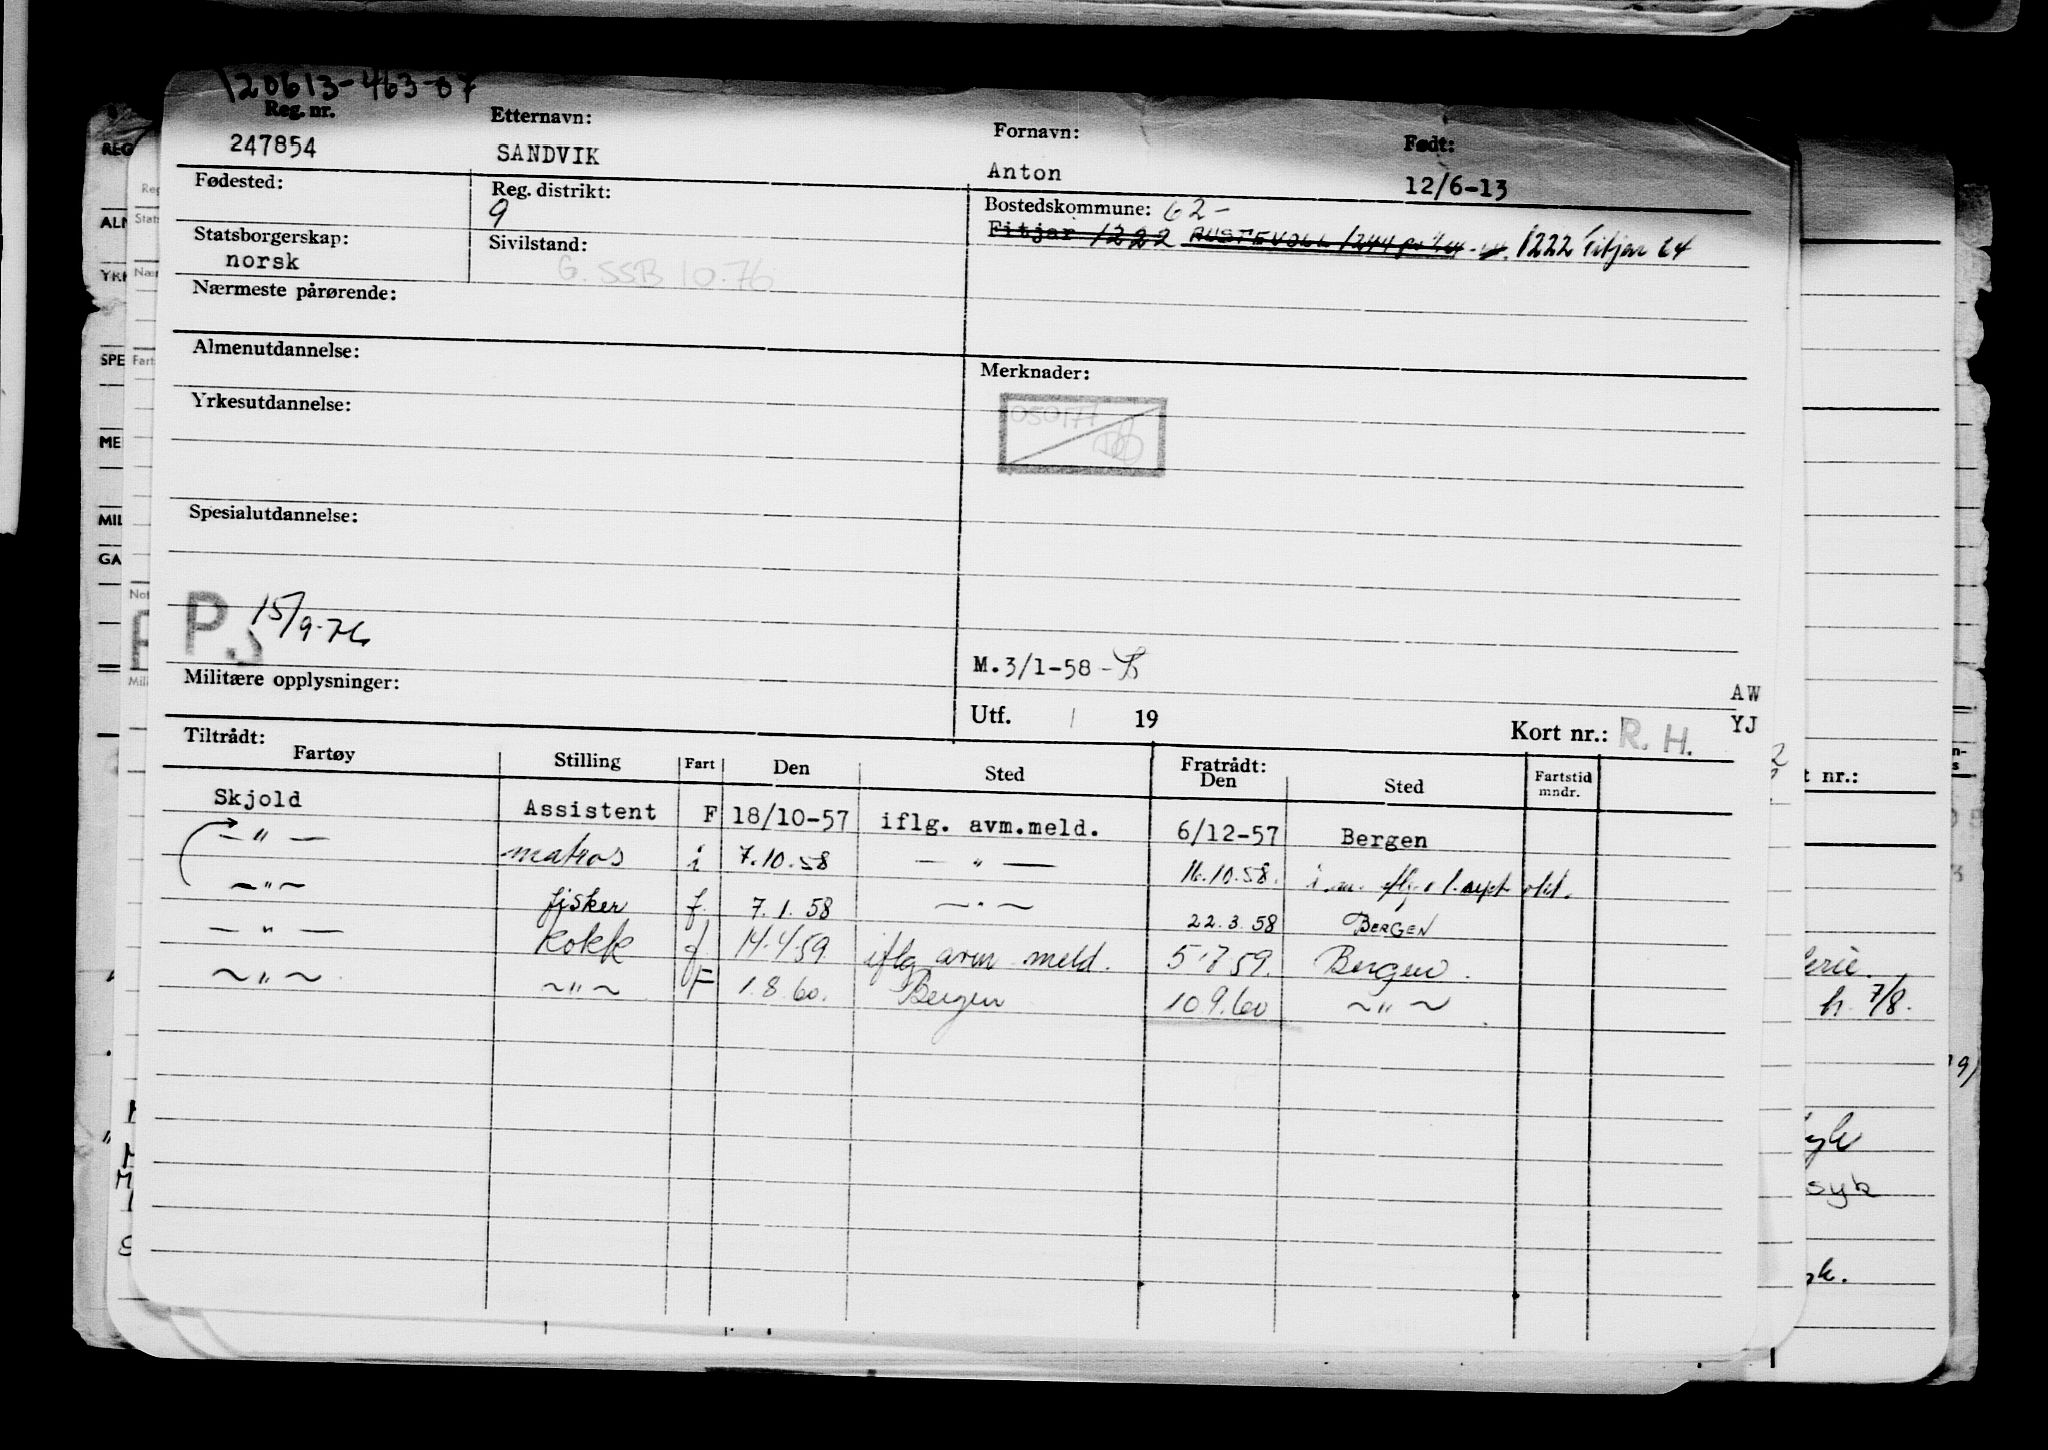 120613-463-07
Reg. nr. Etternavn: Fornavn: Født:
247854 SANDVIK Anton 12/6-13
Fødested: Reg. distrikt: Bostedskommune: 62-
9 Fitjar 1222 AUSTEVOLL 1244 1222 Fitjar 64
Statsborgerskap: Sivilstand:
norsk G. SSB 10.76
Nærmeste pårørende:
Almenutdannelse: Merknader:
Yrkesutdannelse:
050177
Spesialutdannelse:
P.S 15/9-76
M.3/1-58
Militære opplysninger:
AW
Utf. / 19 Kort nr.: R. H. YJ
Tiltrådt: Fratrådt:
Fartøy Stilling Fart Den Sted Den Sted Fartstid mndr.
Skjold Assistent F 18/10-57 iflg. avm.meld. 6/12-57 Bergen
— " — matros i 7.10.58 — " — 16.10.58.
— " — fisker f. 7.1.58 — " — 22.3.58 BERGEN
— " — Kokk f 14.4.59 iflg avm meld. 5.7 59. Bergen.
— " — — " — F 1.8.60. Bergen 10.9.60 — " —
REG
ALM
YRK
SPE
ME
MIL
GA
Reg
Stats
Nær
Fart
Not
Mili
t nr.:
h. 7/8.
syk